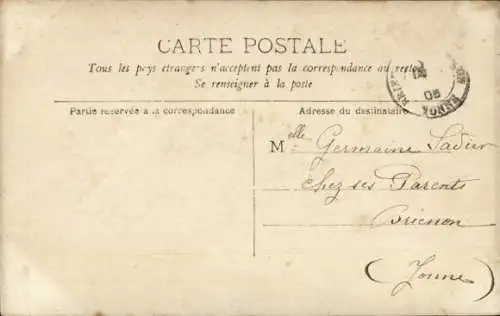 CARTE POSTALE
Tous les pays étrangers n'acceptent pas la correspondance au recto
Se renseigner à la poste
Partie réservée à la correspondance
Adresse du destinataire
Melle Germaine Sadier
chez ses Parents
Brienon
(Yonne)
05